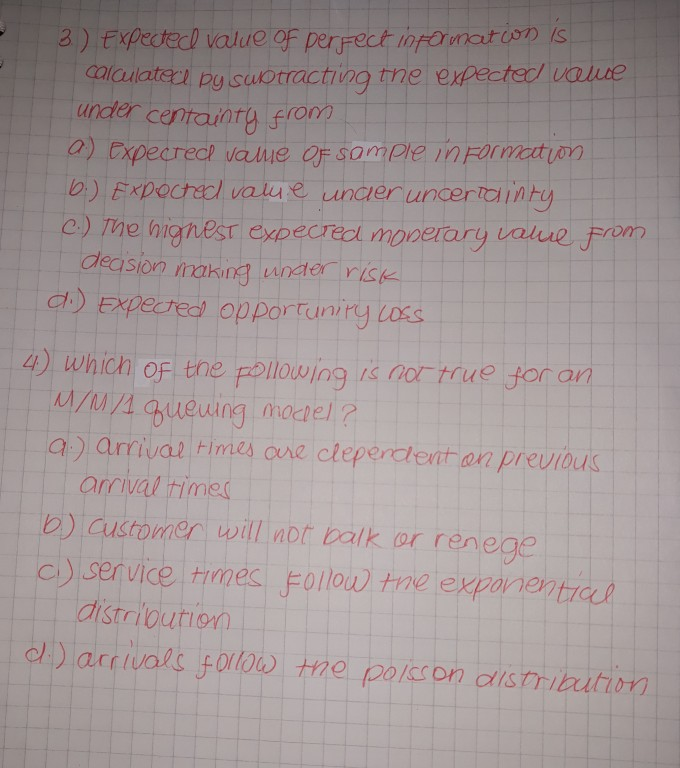 3.) Expected value of perfect information is
calculated by subtracting the expected value
under centainty from
a) Expected value of sample information
b.) Expected value under uncertainty
c.) The highest expected monetary value from
decision making under risk
d.) Expected opportunity loss
4.) which of the following is not true for an
M/M/1 queuing model?
a.) arrival times are dependent on previous
arrival times
b.) customer will not balk or renege
c.) service times follow the exponential
distribution
d.) arrivals follow the poisson distribution